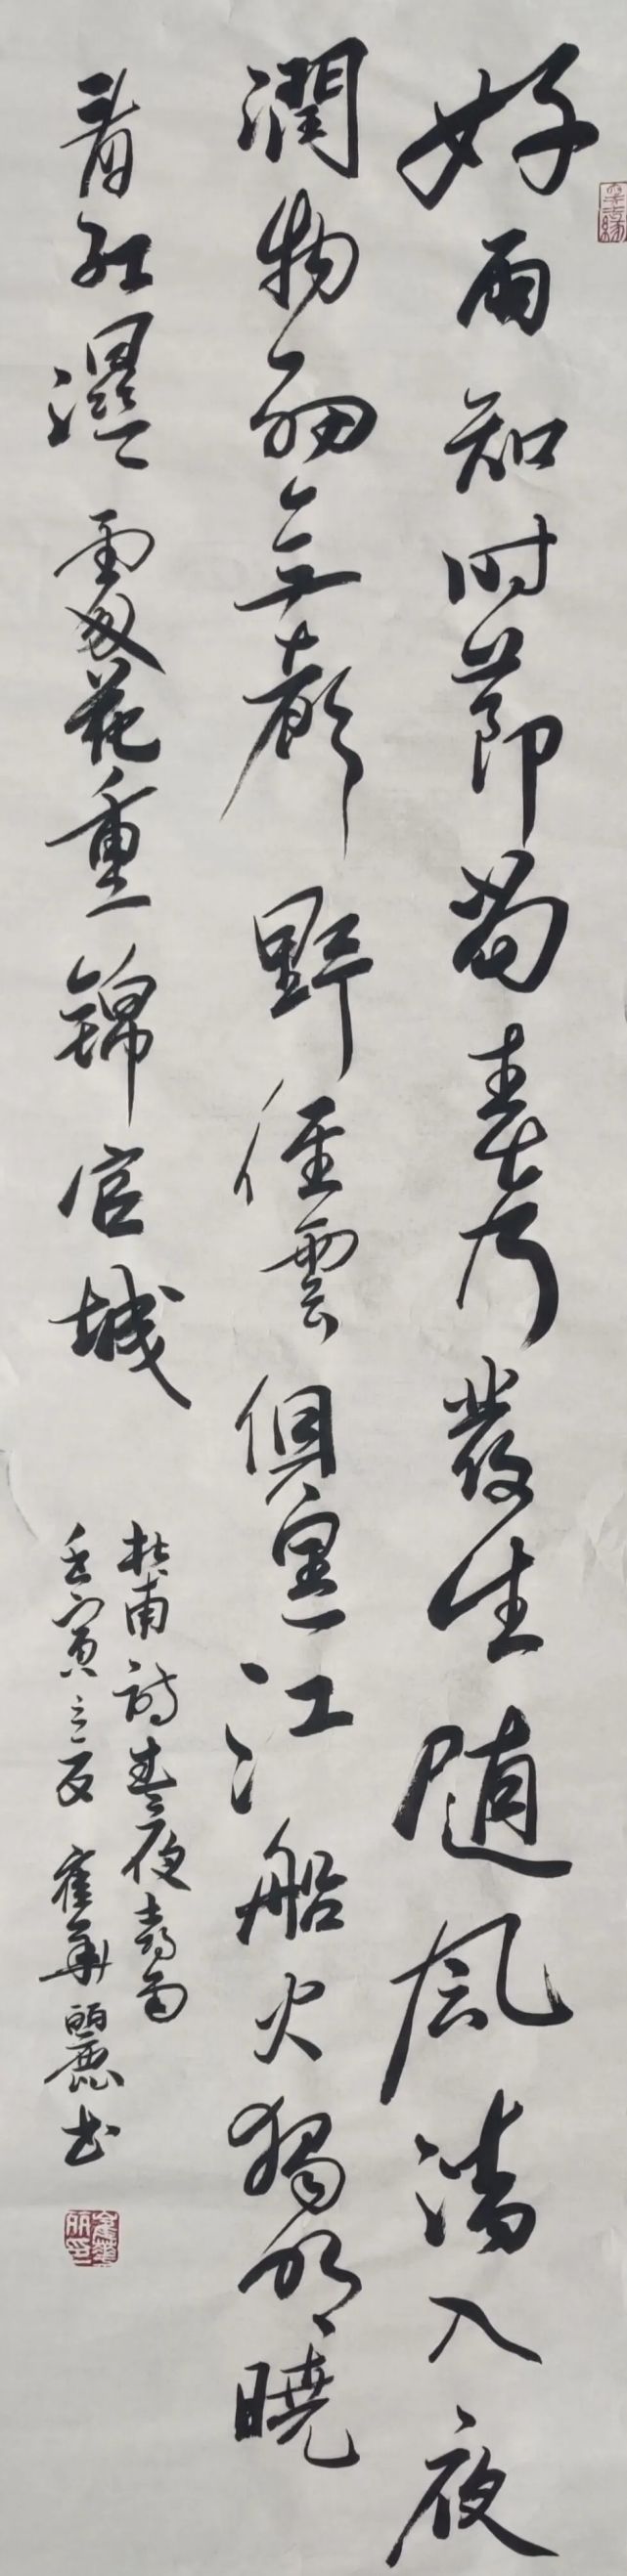 好雨知时節當春乃發生随風潜入夜
潤物細無聲野徑雲俱黑江船火獨明曉
看紅濕處花重錦官城
杜甫詩春夜喜雨
壬寅之夏 崔華麗书